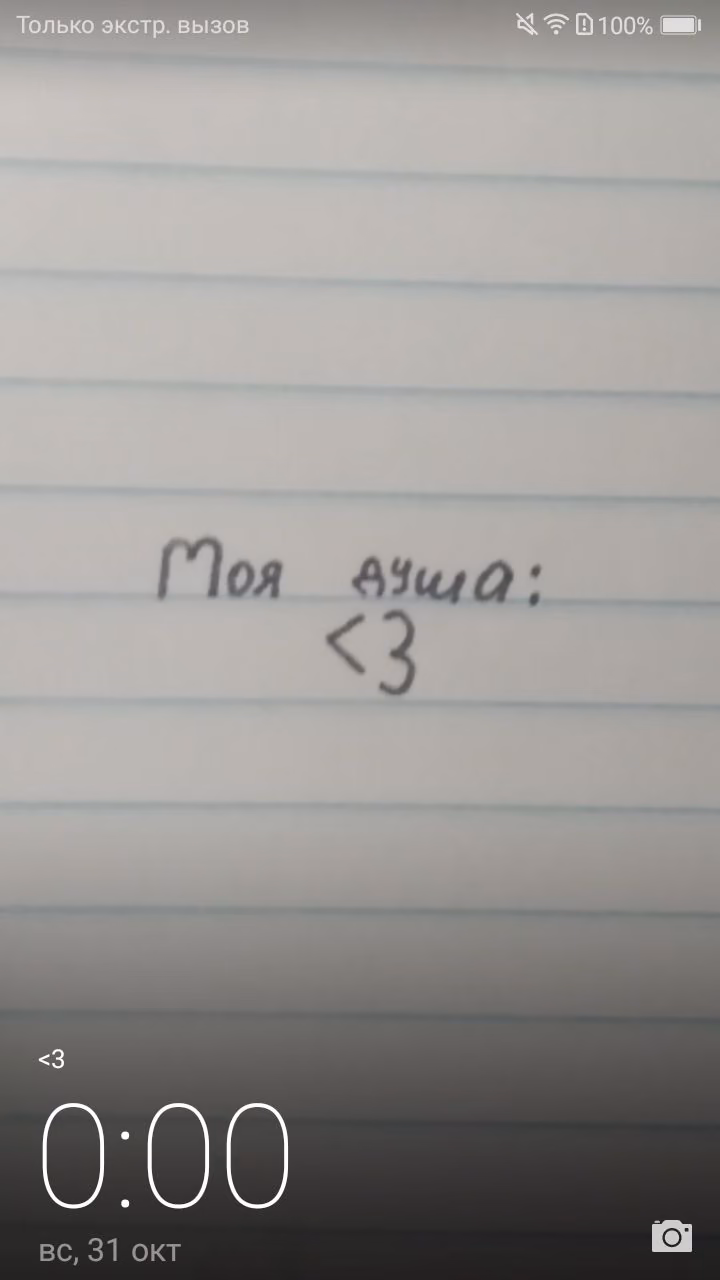 Только экстр. вызов 100%
Моя душа:
<3
<3
0:00
вс, 31 окт